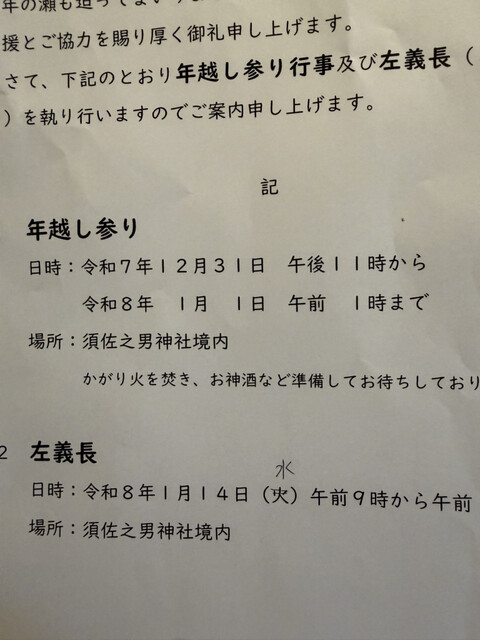 年の瀬も迫ってまい
援とご協力を賜り厚く御礼申し上げます。
さて、下記のとおり年越し参り行事及び左義長（
）を執り行いますのでご案内申し上げます。
記
年越し参り
日時：令和７年１２月３１日　午後１１時から
令和８年　１月　１日　午前　１時まで
場所：須佐之男神社境内
かがり火を焚き、お神酒など準備してお待ちしており
2　左義長
水
日時：令和８年１月１４日（火）午前９時から午前
場所：須佐之男神社境内